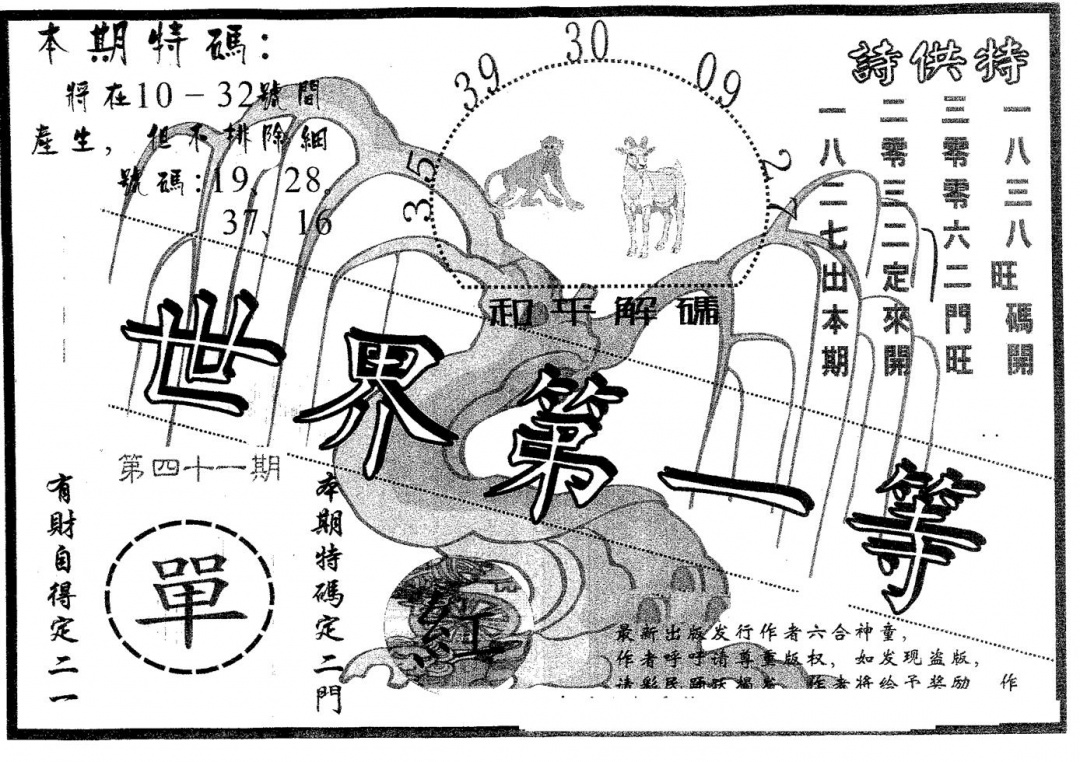 本期特碼：
將在10－32號間
產生，但不排除細
號碼：19、28。
37、16
35
39
30
09
27
和平解碼
詩供特
一八三八旺碼開
三零零六二門旺
二零三二定來開
一八二七出本期
世界第一等
第四十一期
有財自得定二一
單
本期特碼定二門
紅
最新出版发行作者六合神童，
作者呼吁请尊重版权，如发现盗版，
作者将给予奖励 作